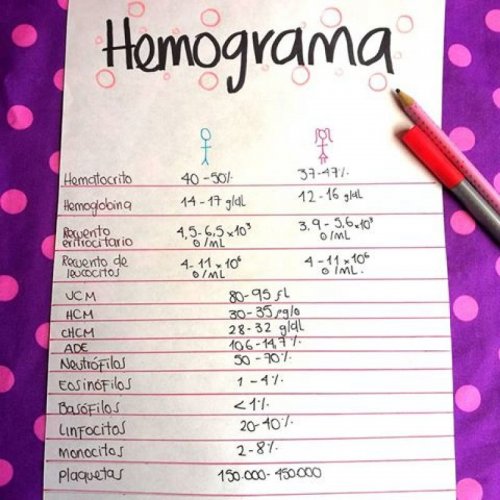 Hemograma
Hematocrito 40-50% 37-47%
Hemoglobina 14-17 g/dl 12-16 g/dl
Recuento eritrocitario 4,5-6,5x10³ 0/mL 3,9-5,6x10³ 0/mL
Recuento de leucocitos 4-11x10⁶ 0/mL 4-11x10⁶ 0/mL.
VCM 80-95 fL
HCM 30-35 pg/o
CHCM 28-32 g/dl
ADE 10.6-14,7%
Neutrófilos 50-70%
Eosinófilos 1-4%
Basófilos <1%
Linfocitos 20-40%
monocitos 2-8%
Plaquetas 150.000-450000